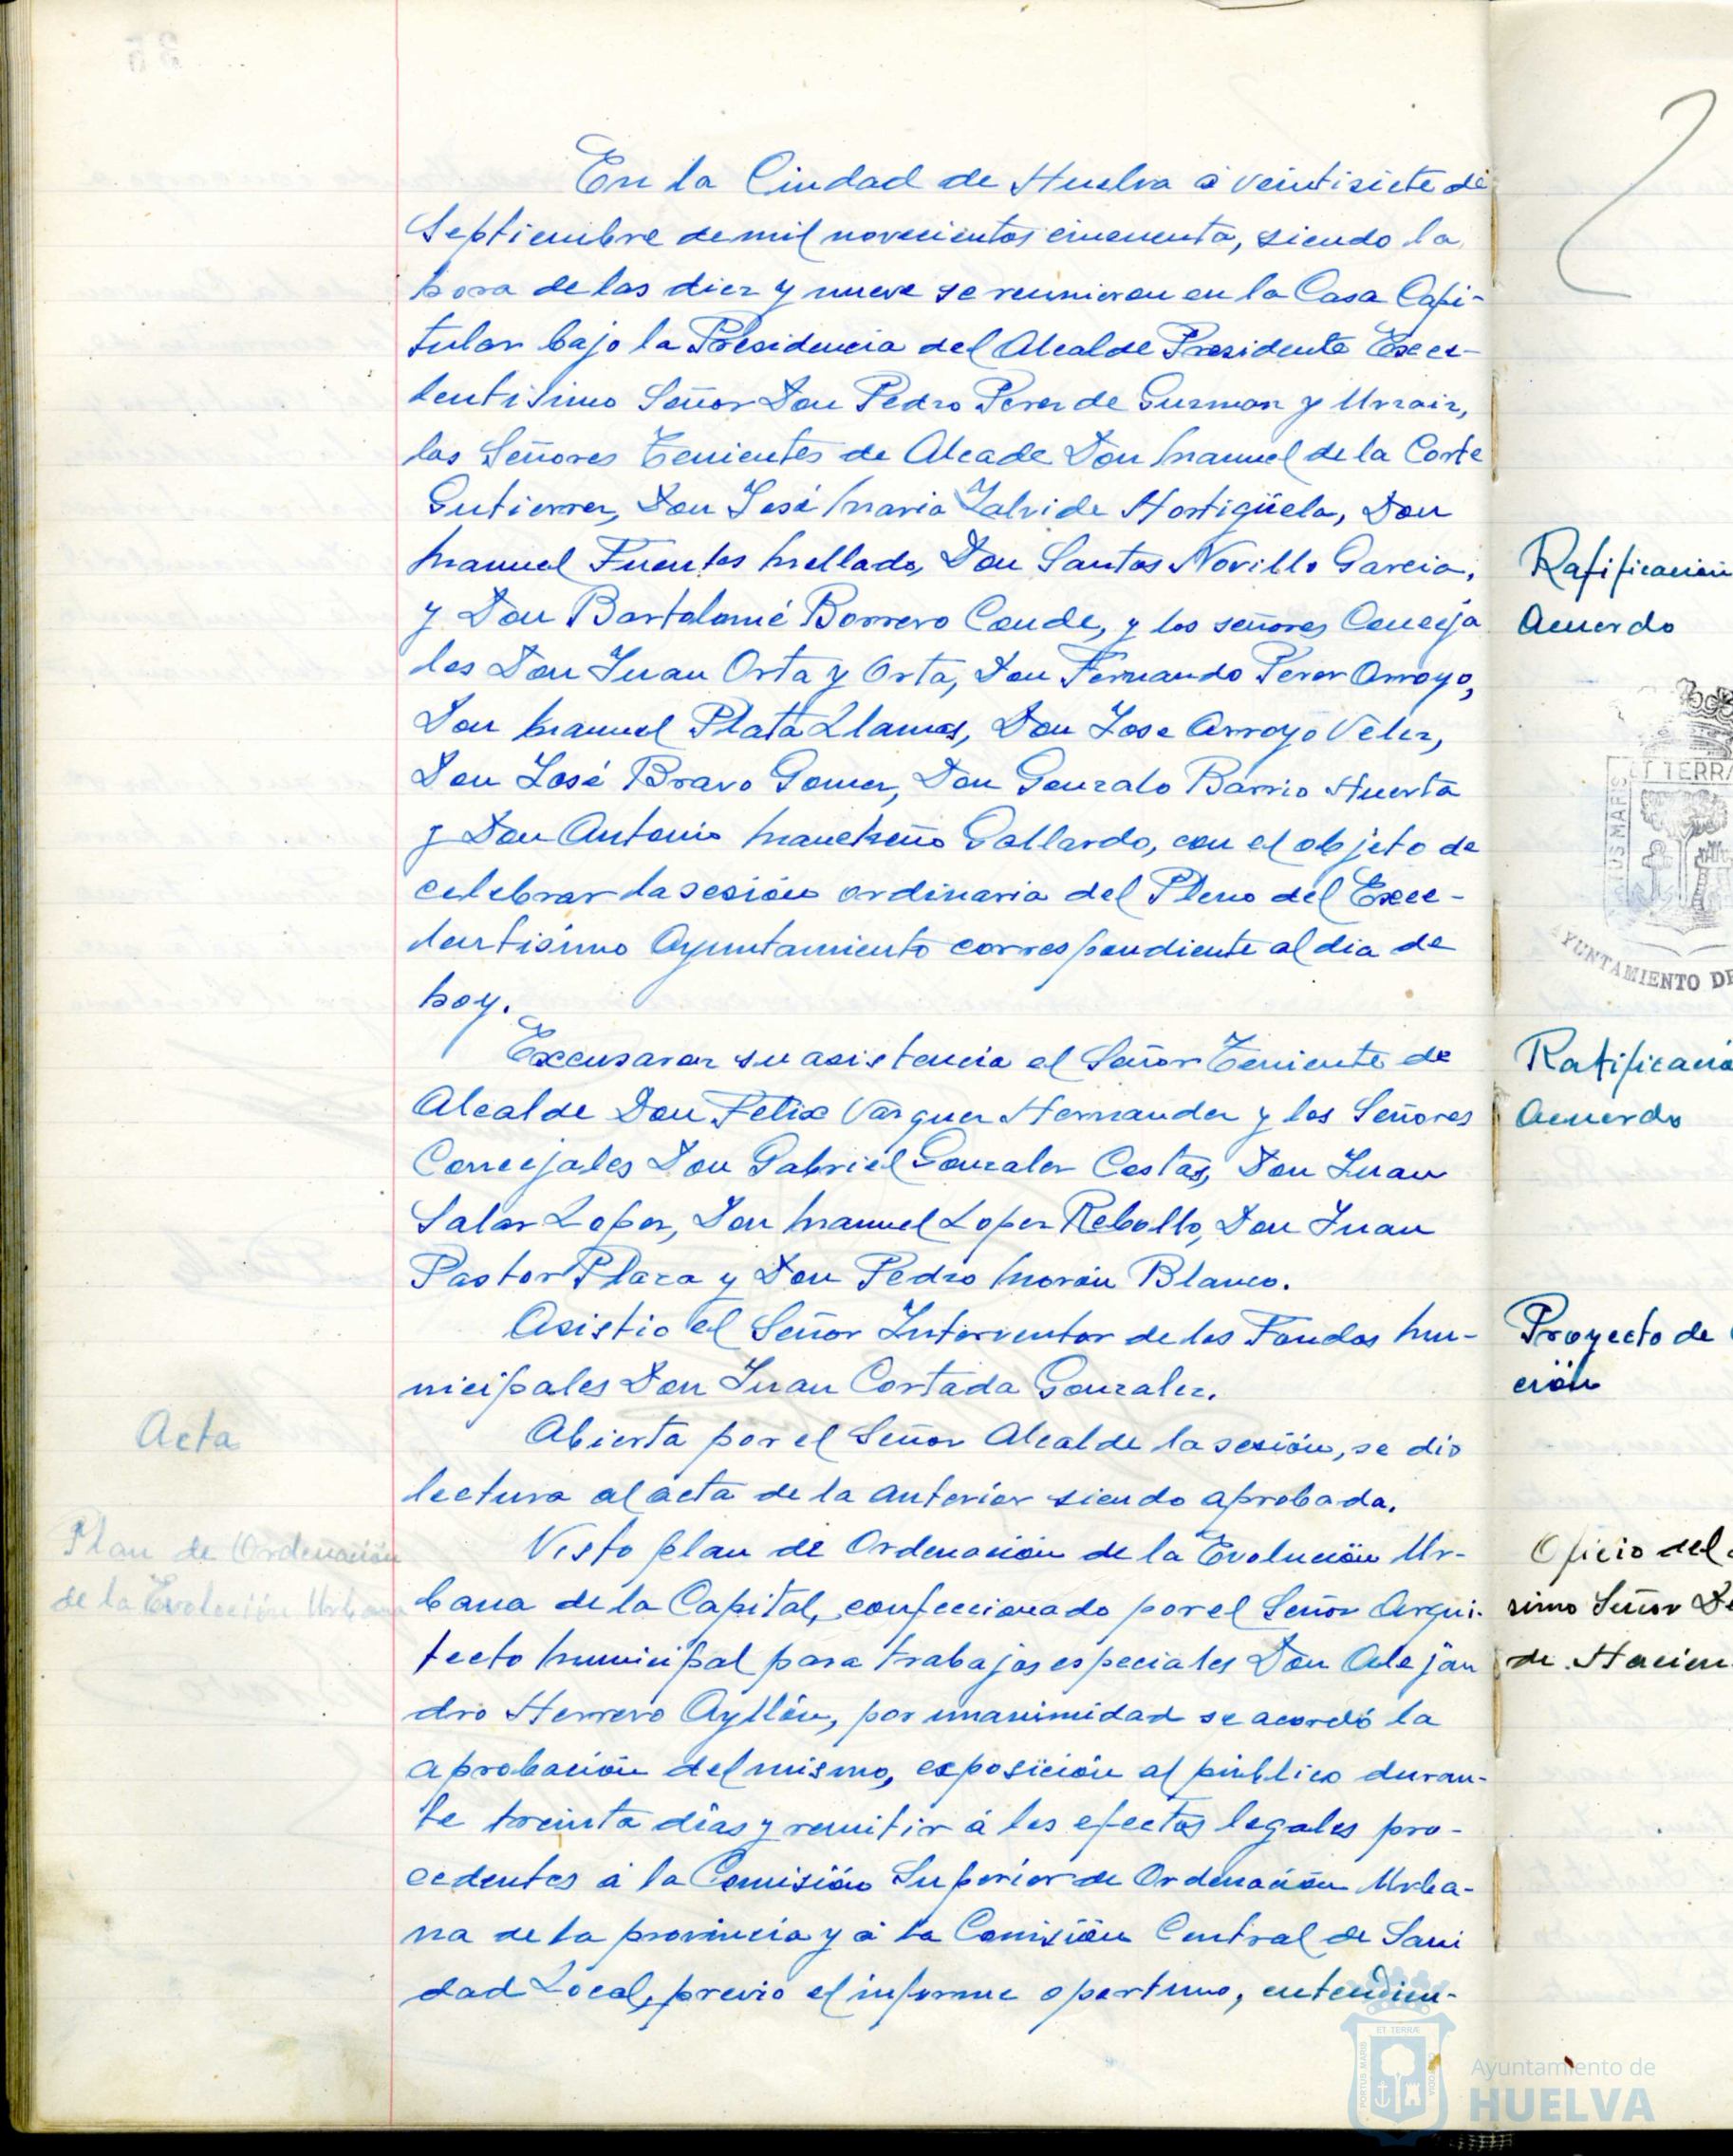 En la Ciudad de Huelva á veintisiete de
Septiembre de mil novecientos cincuenta, siendo la
hora de las diez y nueve se reunieron en la Casa Capi-
tular bajo la Presidencia del Alcalde Presidente Exce-
lentisimo Señor Don Pedro Perez de Guzman y Urzaiz,
los Señores Tenientes de Alcade Don Manuel de la Corte
Gutierrez, Don José Maria Zalvide Hortigüela, Don
Manuel Fuentes Mellado, Don Santos Novillo Garcia,
y Don Bartolomé Borrero Conde, y los señores Conceja
les Don Juan Orta y Orta, Don Fernando Perez Arroyo,
Don Manuel Plata Llamas, Don Jose Arroyo Velez,
Don José Bravo Gomez, Don Gonzalo Barrio Huerta
y Don Antonio Mancheño Gallardo, con el objeto de
celebrar la sesión ordinaria del Pleno del Exce-
lentisimo Ayuntamiento correspondiente al dia de
hoy.
Excusaron su asistencia el Señor Teniente de
Alcalde Don Felix Vazquez Hernandez y los Señores
Concejales Don Gabriel Gonzalez Costas, Don Juan
Salas Lopez, Don Manuel Lopez Rebollo, Don Juan
Pastor Plaza y Don Pedro Morón Blanco.
Asistio el Señor Interventor de los Fondos Mu-
nicipales Don Juan Cortada Gonzalez.
Acta
Abierta por el Señor Alcalde la sesión, se dio
lectura al acta de la anterior siendo aprobada.
Plan de Ordenación
de la Evolución Urbana
Visto plan de Ordenación de la Evolución Ur-
bana de la Capital, confeccionado por el Señor Arqui-
tecto Municipal para trabajos especiales Don Alejan
dro Herrero Ayllón, por unanimidad se acordó la
aprobación del mismo, exposición al público duran-
te treinta días y remitir á los efectos legales pro-
cedentes á la Comisión Superior de Ordenación Urba-
na de la provincia y á la Comisión Central de Sani
dad Local, previo el informe oportuno, entendien-
Ratificación
Acuerdo
ET TERRA
PORTUS MARIS
AYUNTAMIENTO DE
Ratificació
Acuerdo
Proyecto de
ción
Oficio del
simo Señor De
de Hacien
ET TERRÆ
PORTUS MARIS
CUSTODIA
Ayuntamiento de
HUELVA